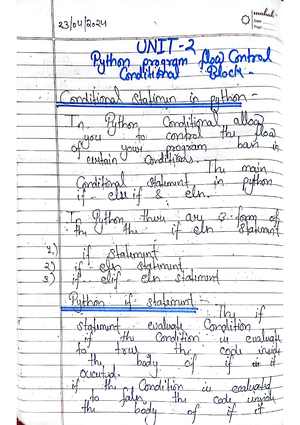 23/04/2024
UNIT-2
Python program flow Control
Conditional Block -
Conditional statimun in python -
In Python, Conditional allow
you to control the flow
of your program basis in
curtain Conditions.
The main
Conditional statement in python
if - else if & eln.
In Python, thur are 3 form of
the the if eln statement
1.) if statement
2) if - eln statement
3) if - elif - eln statement
Python if statement -
The if
statement evaluate Condition
if the Condition is evaluate
to true the code inside
the body of if is
executed.
if the Condition is evaluated
to false the code inside
the body of if is